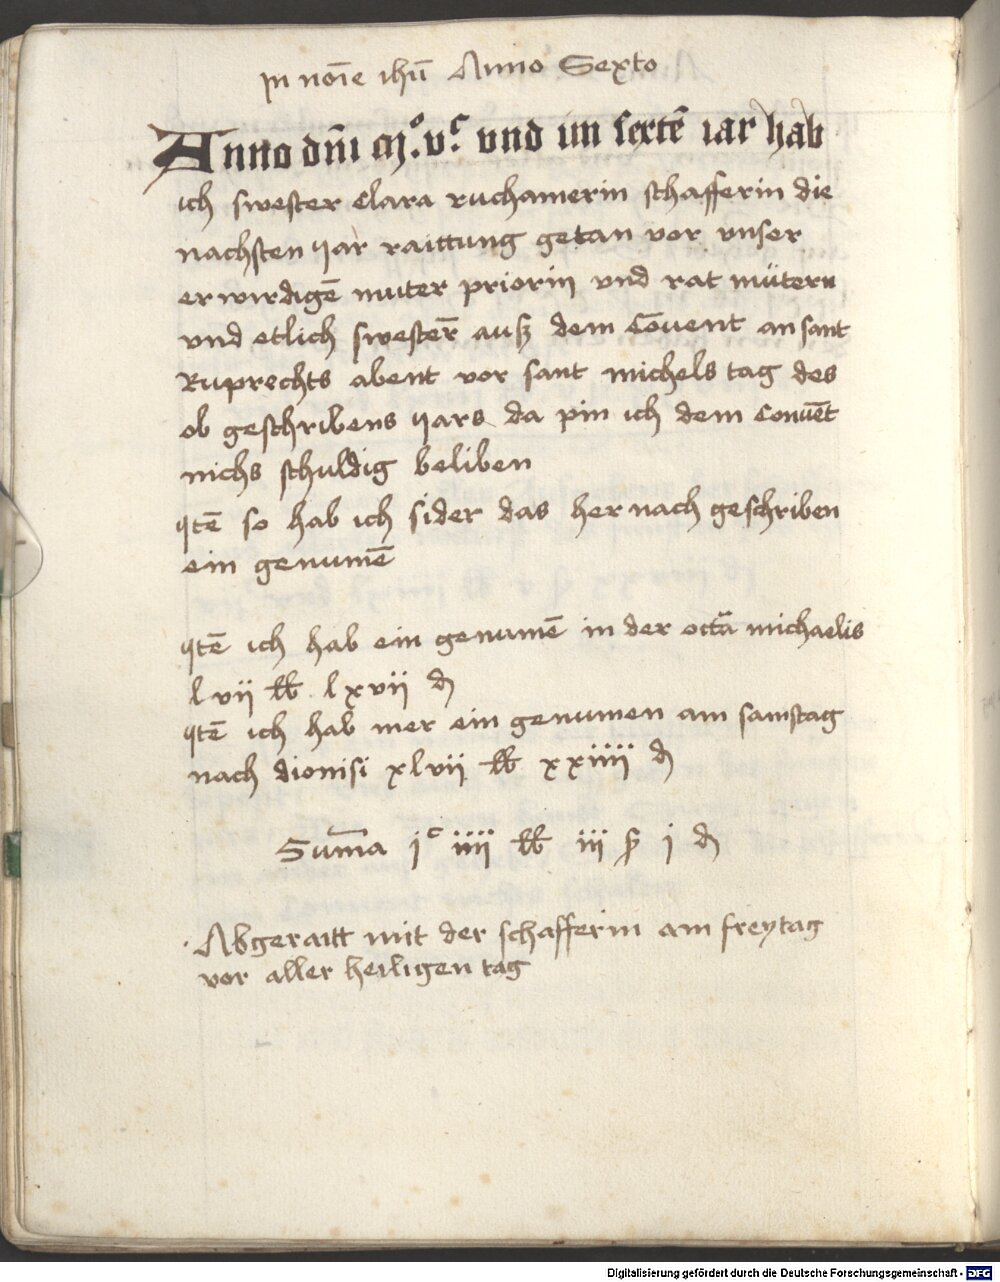 In noīe ihū Anno Sexto
Anno dn̄i m°. vᶜ. vnd im sextē iar hab
ich swester Clara ruchamerin schafferin die
nachsten yar raittung getan vor vnser
erwirdigē muter priorin vnd rat mütern
vnd etlich swester̄ auß dem Cōuent an sant
Ruprechts abent vor sant michels tag des
ob geschribens yars da pin ich dem Conuēt
nichs schuldig beliben
Itē so hab ich sider das her nach geschriben
ein genumē
Itē ich hab ein genumē in der octā michaelis
l vii ℔ l xvii ₰
Itē ich hab mer ein genumen am samstag
nach dionisi xlvii ℔ xxiiii ₰
Sum̄a jᶜ iiii ℔ iii ß j ₰
Abgeraitt mit der schafferin am freytag
vor aller heiligen tag
Digitalisierung gefördert durch die Deutsche Forschungsgemeinschaft - DFG